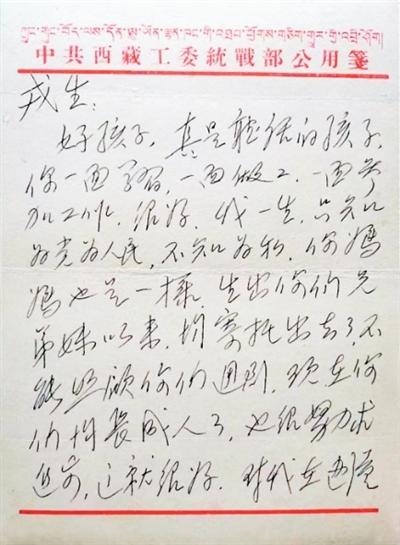 ཀྲུང་གུང་བོད་ལས་དོན་ཨུ་ཡོན་ལྷན་ཁང་གི་འཐབ་ཕྱོགས་གཅིག་གྱུར་
中共西藏工委統戰部公用箋
戎生：
好孩子，真是聽话的孩子，
你一面学习，一面做工，一面参
加工作，很好，我一生，只知
为党为人民，不知为私，你媽
媽也是一樣，生出你们兄
弟妹以来，均寄托出去了，不
能照顾你们周到，现在你
们均長成人了，也很努力求
进步，这就很好．